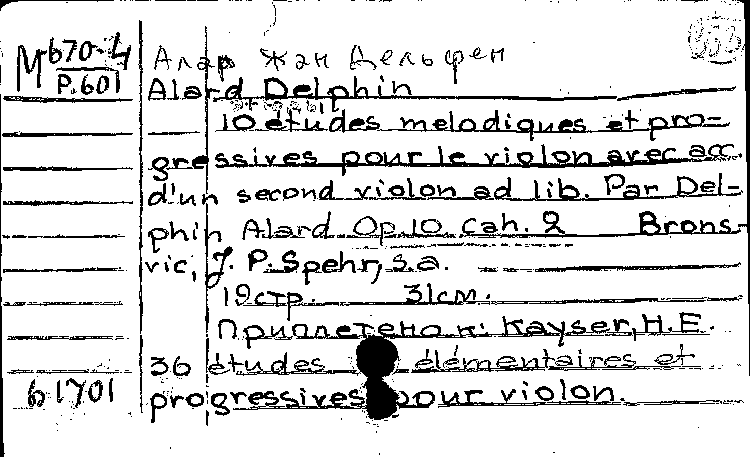 М 670-4
P.601
Алар Жан Дельфен
Alard Delphin
10 études melodiques et pro=
gressives pour le violon avec acc.
d'un second violon ad lib. Par Del=
phin Alard Op.10 Cah. 2 Brons-
vic, J. P. Spehr, s.a.
19стр. 31см.
Приплетено к: Kayser, H.E.
36 études élémentaires et
61701
progressives pour violon.